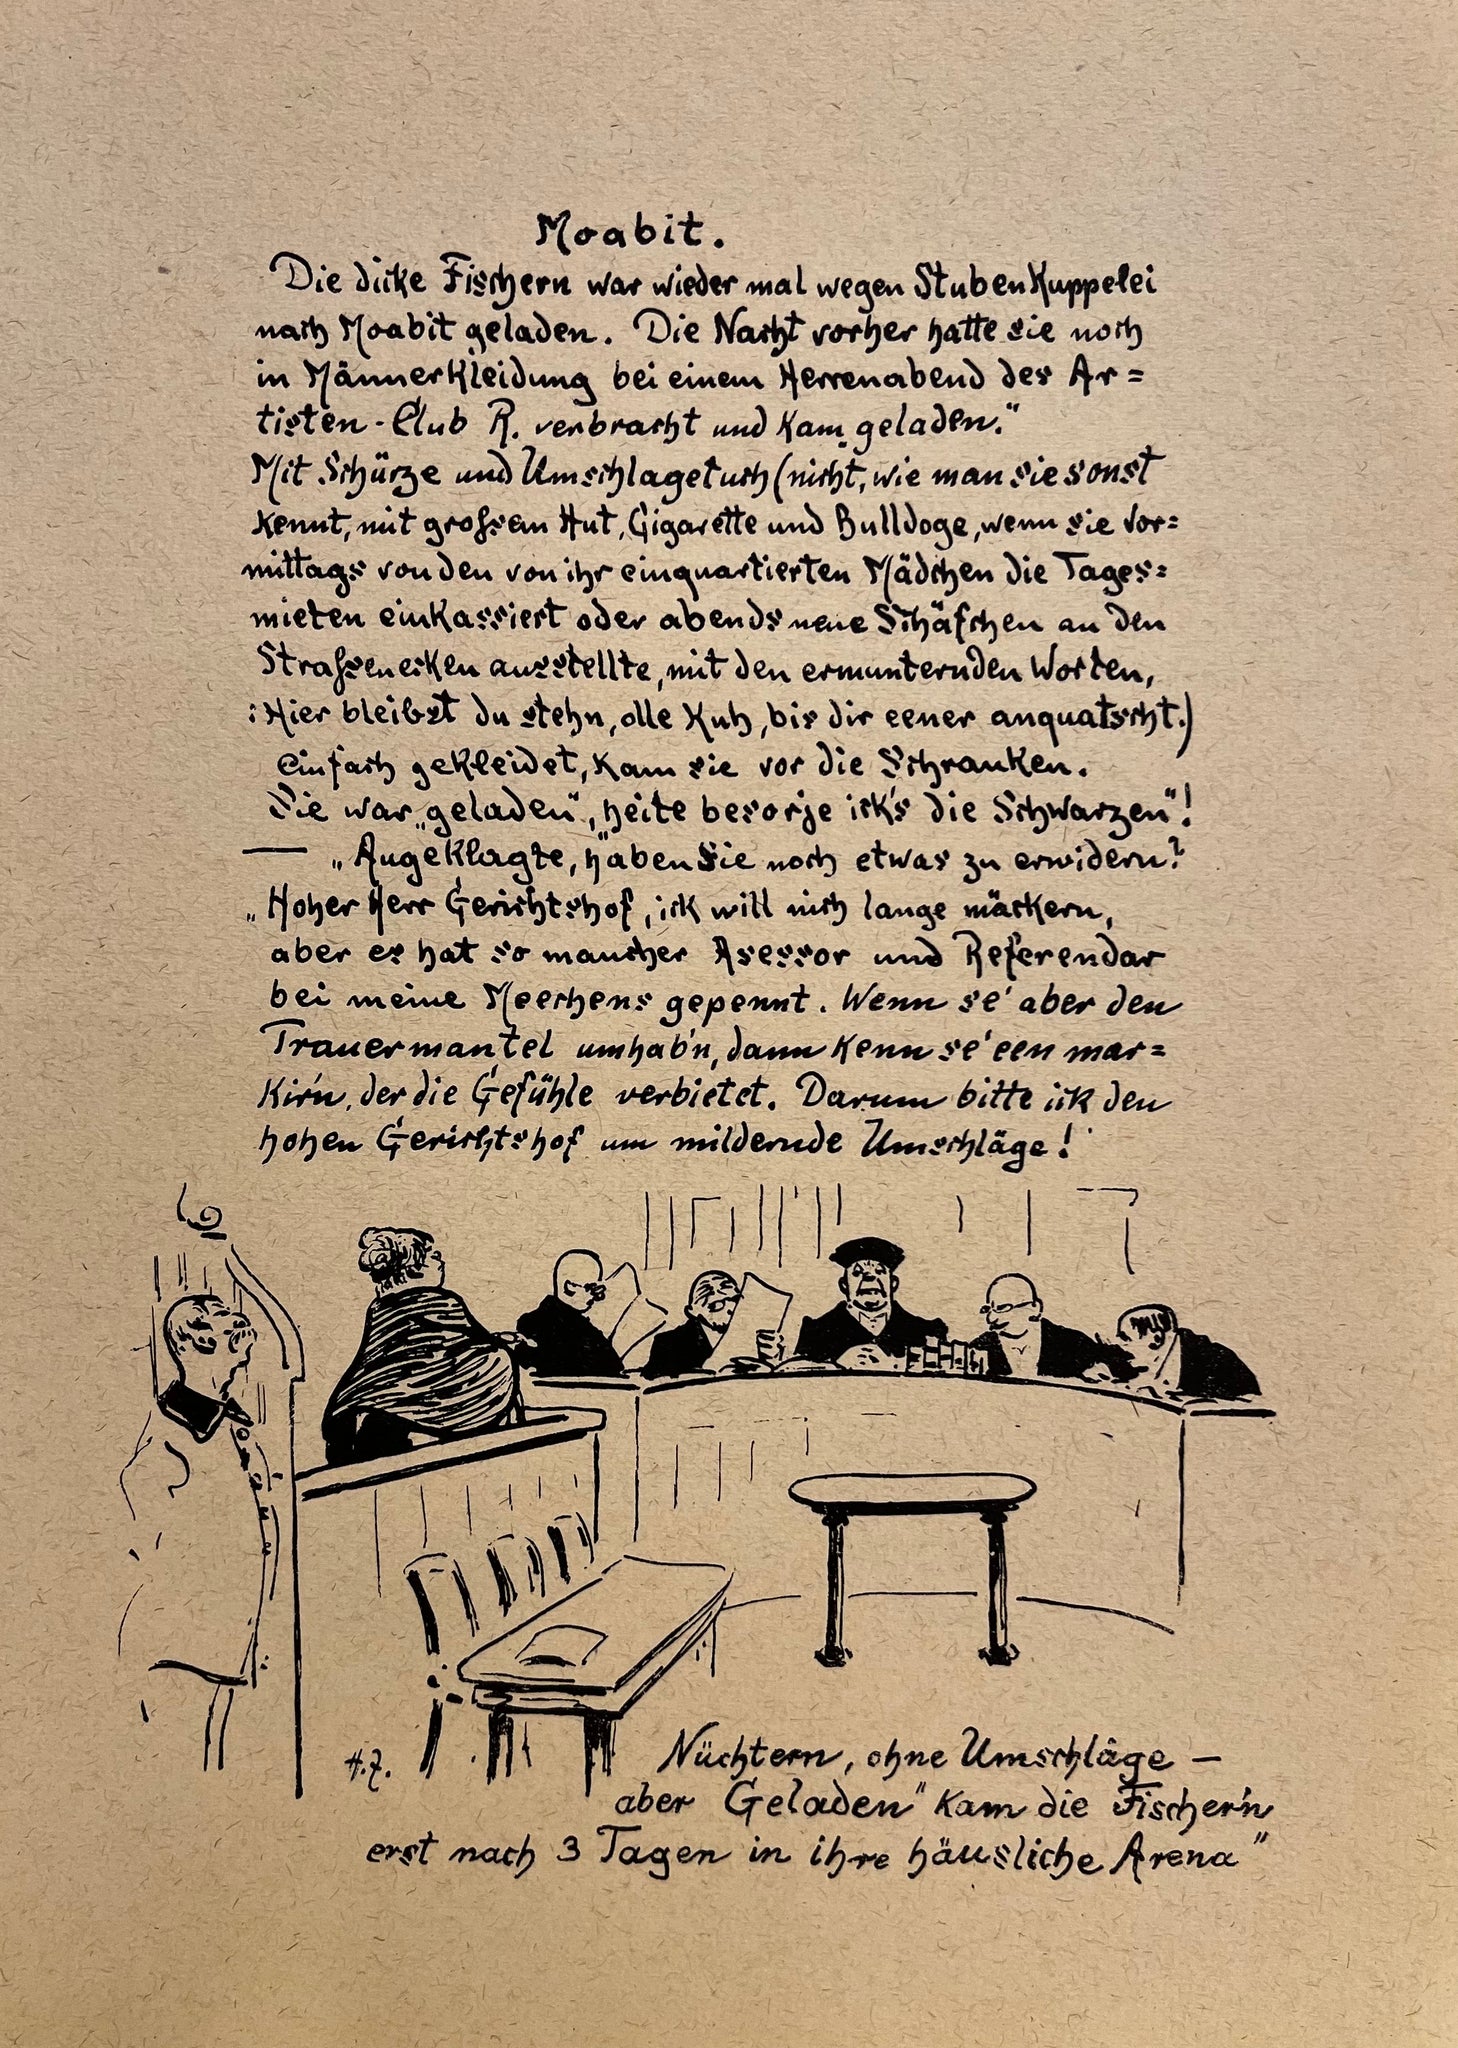 Moabit.
Die dicke Fischern war wieder mal wegen Stubenkuppelei
nach Moabit geladen. Die Nacht vorher hatte sie noch
in Männerkleidung bei einem Herrenabend des Ar=
tisten-Club R. verbracht und kam „geladen."
Mit Schürze und Umschlagetuch (nicht, wie man sie sonst
kennt, mit großem Hut, Cigarette und Bulldoge, wenn sie vor=
mittags von den von ihr einquartierten Mädchen die Tages=
mieten einkassiert oder abends neue Schäfchen an den
Strassenecken ausstellte, mit den ermunternden Worten,
: Hier bleibst du stehn, olle Kuh, bis dir eener anquatscht.)
einfach gekleidet, kam sie vor die Schranken.
Sie war „geladen", „heite besorje ick's die Schwarzen"!
— „Angeklagte, haben Sie noch etwas zu erwidern?
„Hoher Herr Gerichtshof, ick will nich lange mäckern,
aber es hat so mancher Asessor und Referendar
bei meine Meechens gepennt. Wenn se' aber den
Trauermantel umhab'n, dann kenn se' een mar=
kir'n, der die Gefühle verbietet. Darum bitte ick den
hohen Gerichtshof um mildernde Umschläge!
H.Z.
Nüchtern, ohne Umschläge —
aber Geladen" kam die Fischer'n
erst nach 3 Tagen in ihre häusliche Arena"